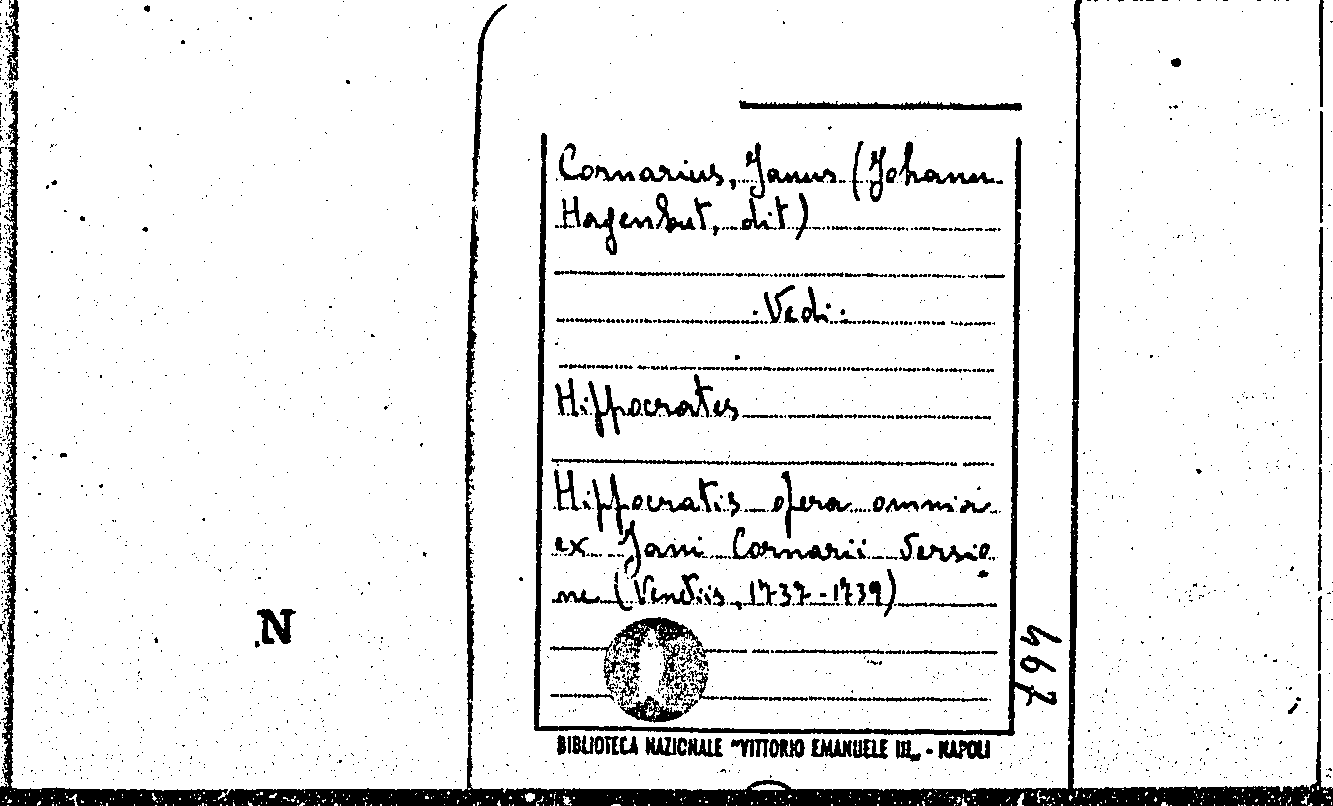 Cornarius, Janus (Johann
Hagenbut, dit)
Vedi:
Hippocrates
Hippocratis opera omnia
ex Jani Cornarii versio
ne (Venetiis, 1737-1739)
N
467
BIBLIOTECA NAZIONALE "VITTORIO EMANUELE III„ - NAPOLI